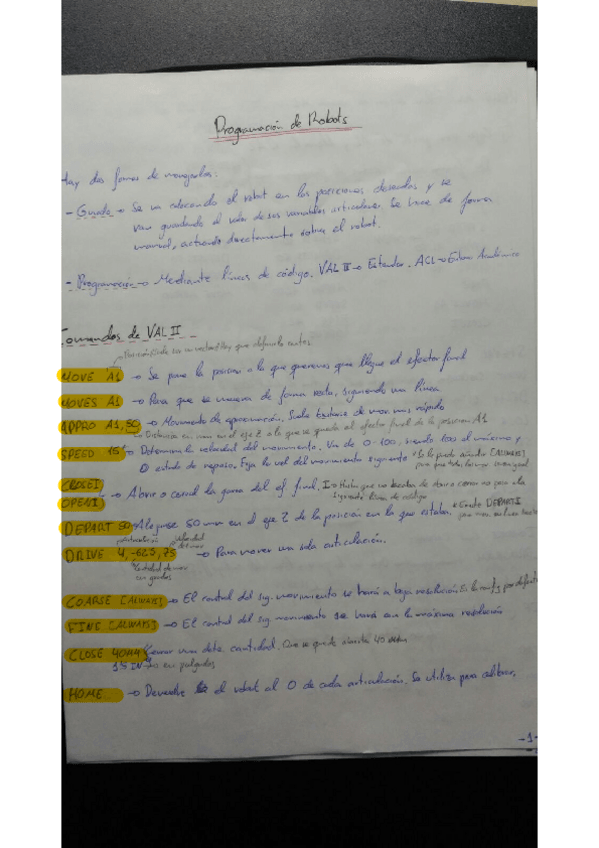 Programación de Robots
Hay dos formas de manejarlos:
- Guiado → Se va colocando el robot en las posiciones deseadas y se
van guardando el valor de sus variables articulares. Se hace de forma
manual, actuando directamente sobre el robot.
- Programación → Mediante líneas de código. VAL II → Estándar. ACL → Académico
Comandos de VAL II
Posición que definirla antes
MOVE A1 → Se pone la posición a la que queremos que llegue el efector final
MOVES A1 → Para que se mueva de forma recta, siguiendo una línea
APPRO A1, 50 → Movimiento de aproximación. Suele tratarse de mov. más rápido
→ Distancia en mm en el eje Z a la que se queda el efector final de la posición A1
SPEED 15 → Determina la velocidad del movimiento. Va de 0-100, siendo 100 el máximo y
0 estado de reposo. Fija la vel del movimiento siguiente * Se le puede añadir [ALWAYS]
para que todos
CLOSEI
OPENI → Abrir o cerrar la garra del ef final. I → Hasta que no terminen de abrir o cerrar no pasa a la
siguiente línea de código
DEPART 50 → Alejarse 50 mm en el eje Z de la posición en la que estaba. * Existe DEPARTS
para mov. en línea recta
articulación velocidad
del mov
DRIVE 4, -62.5, 75 → Para mover una sola articulación.
Cantidad de mov
en grados
COARSE [ALWAYS] → El control del sig. movimiento se hará a baja resolución. por defecto
FINE [ALWAYS] → El control del sig movimiento se hará en la máxima resolución
CLOSE 40MM Cerrar una det. cantidad. Que se quede abierta 40 mm
IN → en pulgadas
HOME → Devuelve el robot al 0 de cada articulación. Se utiliza para calibrar.
-1-